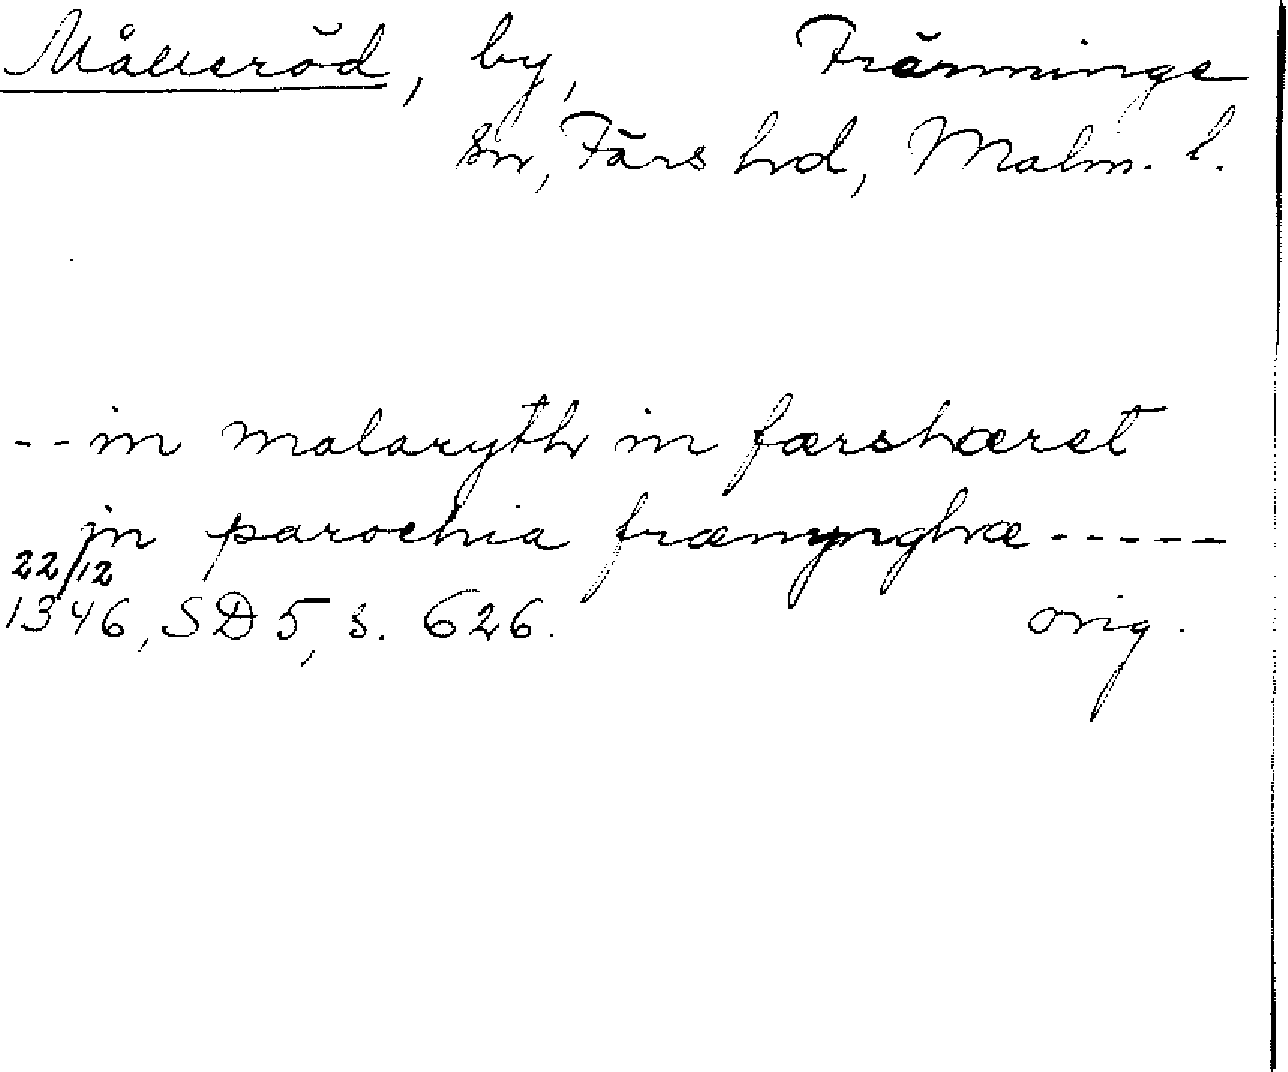 Målleröd, by, Fränninge
sn, Färs hd, Malm. l.
-- in malaryth in færshæret
in parochia frænynghæ -----
22/12
1346, SD 5, s. 626. orig.